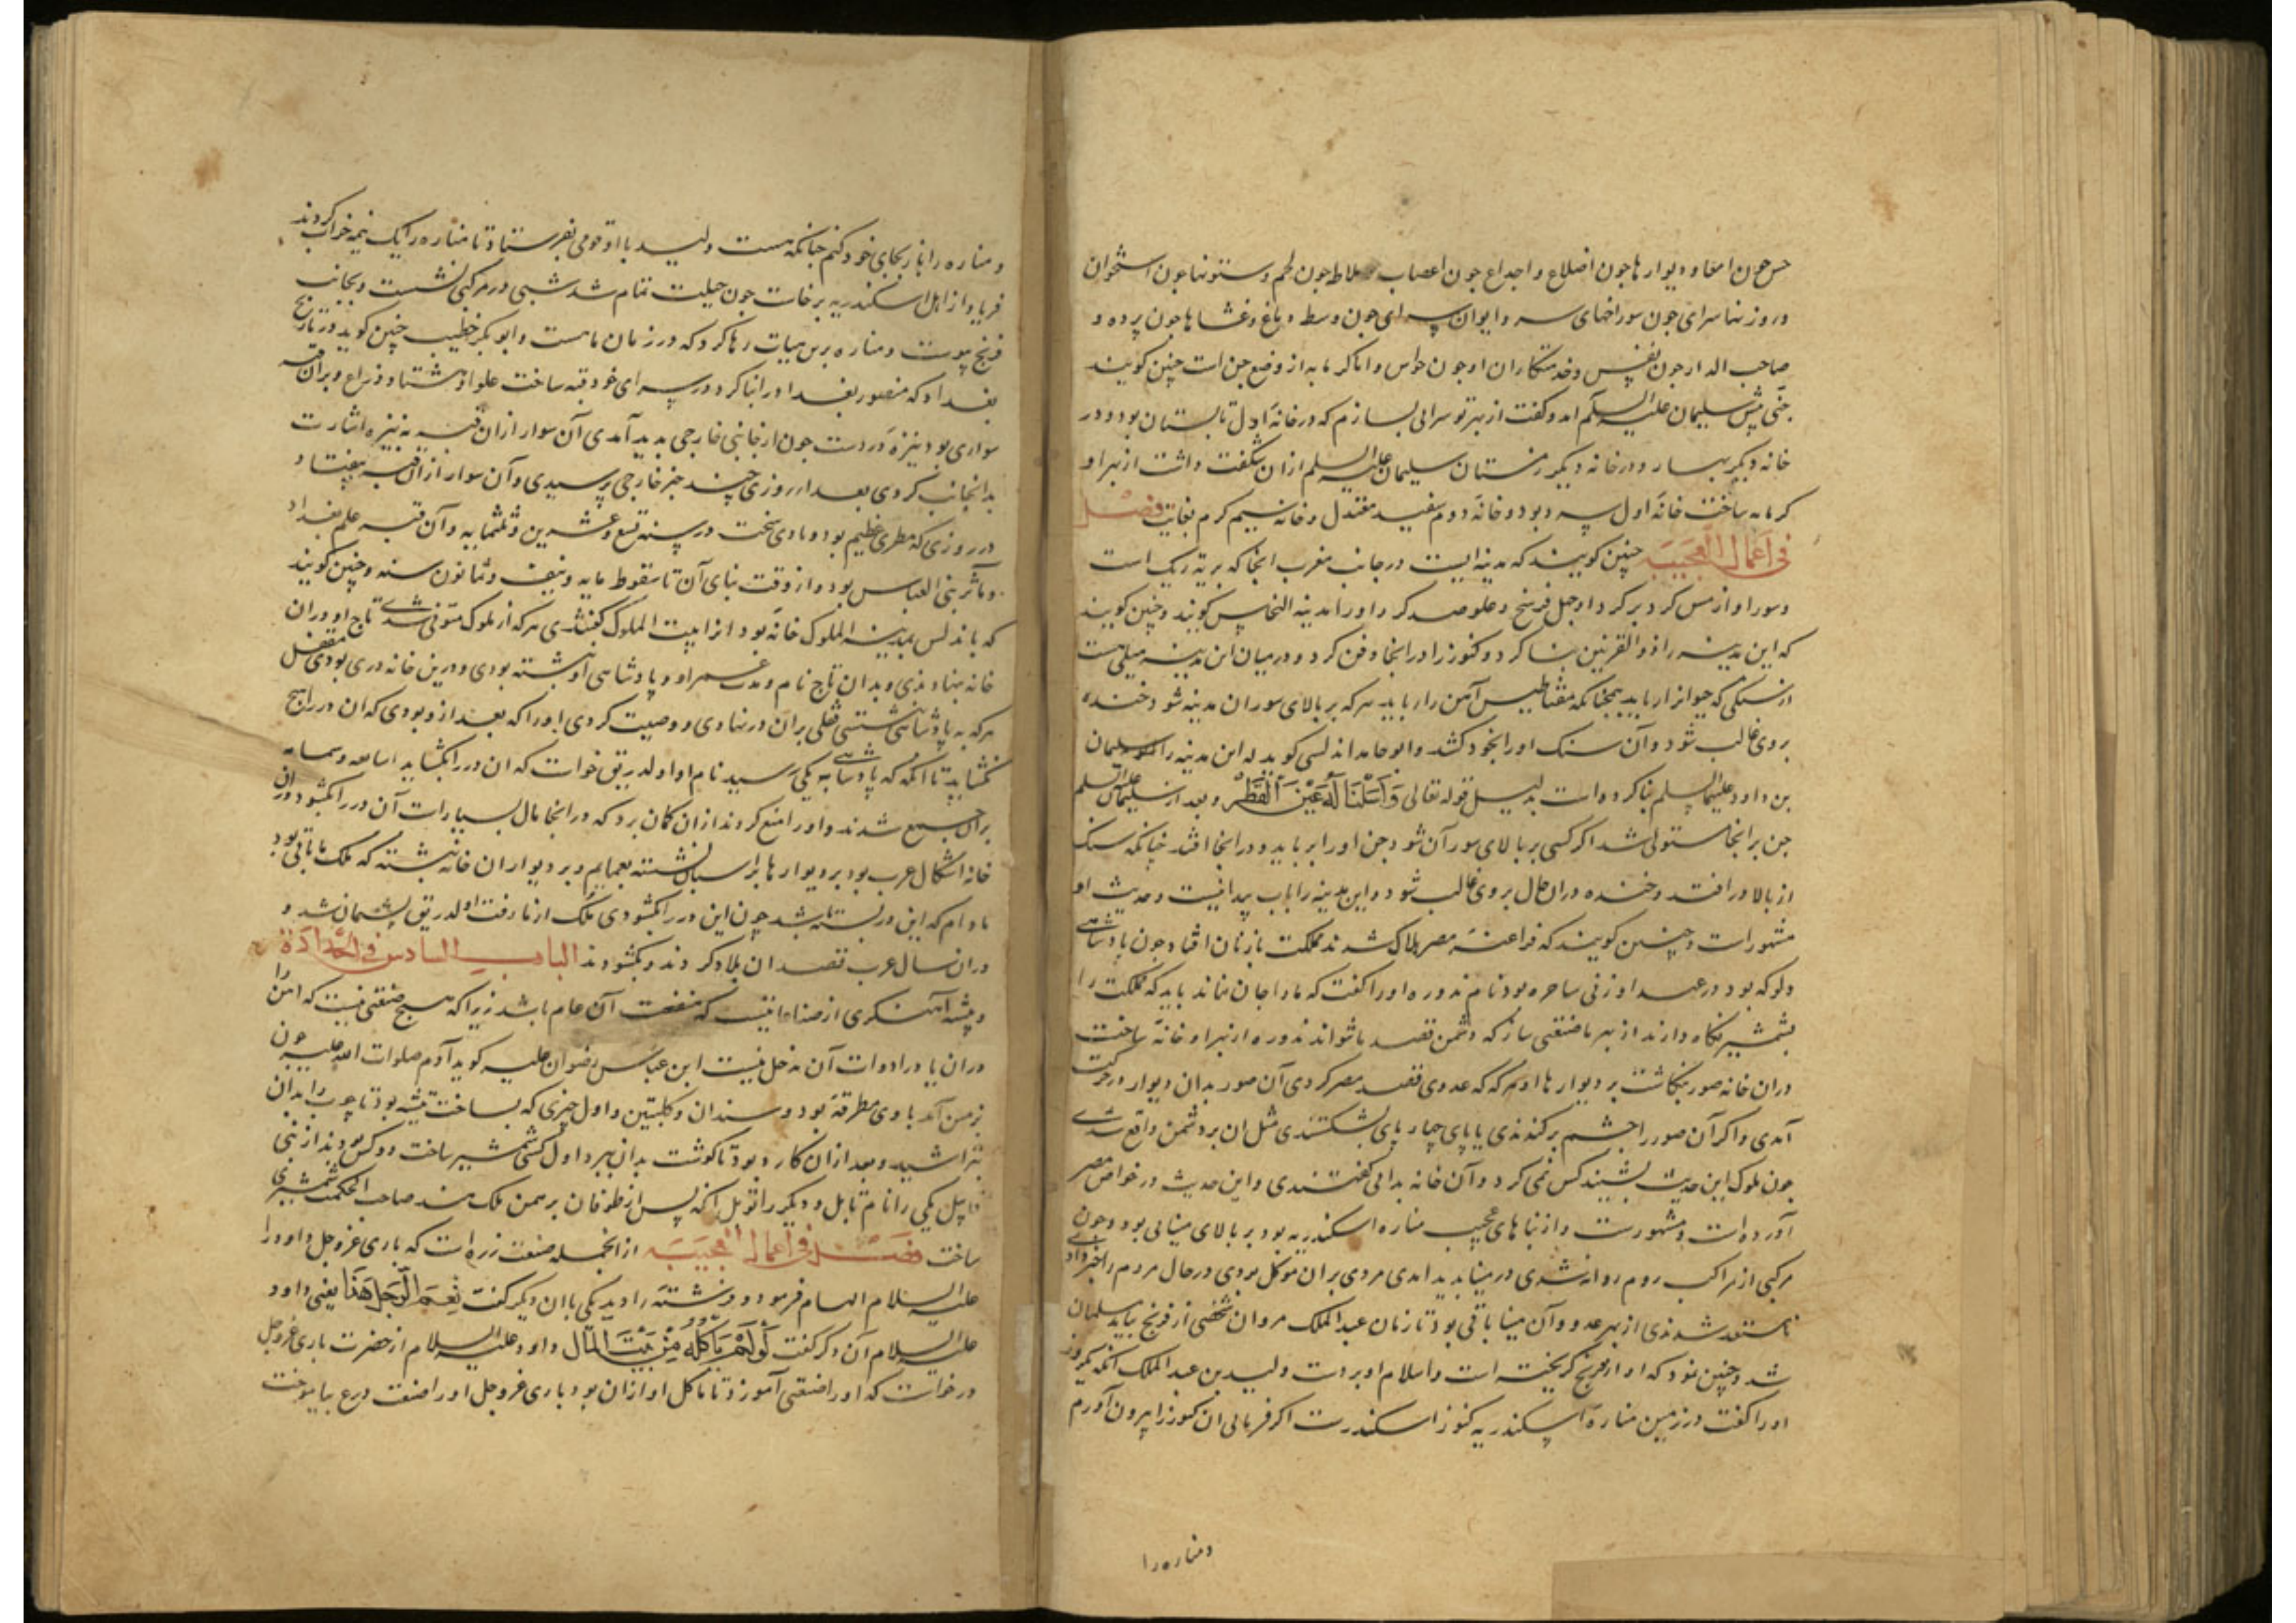 چون امعا و دیوارها چون اضلاع و اجداع چون اعصاب و ملاط چون لحم و ستونها چون استخوان
و روزنها سرای چون سوراخهای سر و ایوان سرای چون وسط دماغ و غشاها چون پرده و
صاحب الدار چون نفس و خدمتکاران او چون حواس و اما کرمابه از وضع جن است چنین کویند
جنی پیش سلیمان علیه السلم امد و کفت از بهر تو سرایی بسازم که در خانه اول تابستان بود و در
خانه دیکر بهار و در خانه دیکر زمستان سلیمان علیه السلم ازان شکفت داشت از بهر او
کرمابه ساخت خانه اول سرد بود و خانه دوم سفید معتدل و خانه سیم کرم بغایت فصل
فی اعمال العجیبة چنین کویند که مدینه ایست در جانب مغرب انجا که بریه ریک است
و سور او از مس کرد بر کرد او چهل فرسخ و علو صد کز و او را مدینه النحاس کویند و چنین کویند
که این مدینه را ذو القرنین بنا کرد و کنوز را در انجا دفن کرد و در میان این مدینه میلی هست
از سنکی که حیوانرا رباید همچنانکه مغناطیس آهن را رباید هر که بر بالای سور ان مدینه شود خنده
بر وی غالب شود و آن سنک او را بخود کشد و ابو حامد اندلسی کوید که این مدینه را سلیمان
بن داود علیهما السلم بنا کرده است بدلیل قوله تعالی وَأَسَلْنَا لَهُ عَيْنَ الْقِطْرِ و بعد از سلیمان علیه السلم
جن بر انجا مستولی شد اکر کسی بر بالای سور آن شود جن او را برباید و در انجا افتد چنانکه سنک
از بالا در افتد و خنده دران حال بر وی غالب شود و این مدینه را باب پیدا نیست و حدیث او
مشهورست و چنین کویند که فراعنه مصر هلاک شدند مملکت بازنان افتاد چون پادشاهی
دلوکه بود در عهد او زنی ساحره بود نام ندوره او را کفت که ما را جان نماند باید که مملکت را
بشمشیر نکاه دارند از بهر ما صنعتی ساز که دشمن قصد ما نتواند ندوره از بهر او خانه ساخت
دران خانه صور بنکاشت بر دیوارها و هر که که عدوی قصد مصر کردی آن صور بدان دیوار در حرکت
آمدی و اکر آن صور را چشم برکندندی یا پای چهار پای بشکستندی مثل ان بر دشمن واقع شدی
چون ملوک این حدیث بشنیدند کس نمی کرد و آن خانه بدابی کفتندی و این حدیث در خواص مصر
آورده است و مشهورست و از بناهای عجیب مناره اسکندریه بود بر بالای مینائی بود و چون
مرکبی از مراکب روم روانه شدی در مینا بدید امدی مردی بر ان موکل بودی در حال مردم را خبر دادی
تا مستعد شدندی از بهر عدو و آن مینا باقی بود تا زمان عبد الملک مروان شخصی از فرنج بیامد مسلمان
شد و چنین نمود که او از فرنج کریخته است و اسلام اوبر دست ولید بن عبد الملک انکه یک روز
او را کفت در زمین مناره اسکندریه کنوز اسکندرست اکر فرمایی ان کنوز را بیرون آورم
و مناره را
و مناره را باز بجای خود کنم چنانکه هست ولید با او قومی بفرستاد تا مناره را یک نیمه خراب کردند
فریاد از اهل اسکندریه برخاست چون حیلت تمام شد شبی در مرکبی نشست و بجانب
فرنج پیوست و مناره برین هیات رها کرد که در زمان ما هست و ابو بکر خطیب چنین کوید در تاریخ
بغداد که منصور بغداد را بنا کرد در سرای خود قبه ساخت علو او هشتاد ذراع و بران قبه
سواری بود نیزه در دست چون از جانبی خارجی بدید آمدی آن سوار ازان قبه به نیزه اشارت
بدانجانب کردی بعد از روزی چند خبر خارجی برسیدی و آن سوار ازان قبه بیفتاد
در روزی که مطری عظیم بود و بادی سخت در سنه تسع و عشرین و ثلثمایه و آن قبه علم بغداد
و مآثر بنی العباس بود و از وقت بنای آن تا سقوط مایه و نیف و ثمانون سنه و چنین کویند
که باندلس بمدینه الملوک خانه بود انرا بیت الملوک کفتندی هر که از ملوک متوفی شدی تاج او دران
خانه بنهادندی و بدان تاج نام و مدت عمر او و پادشاهی او نبشته بودی و درین خانه دری بودی مقفل
هر که به پادشاهی نشستی قفلی بران در نهادی و وصیت کردی او را که بعد از و بودی که ان در را هیچ
نکشاید تا انکه که پادشاهی به یکی رسید نام او اولدریق خواست که ان در را بکشاید اساقفه و شمامسه
بران جمع شدند و او را منع کردند ازان کمان برد که در انجا مال بسیارست آن در را بکشود دران
خانه اشکال عرب بود بر دیوارها بر اسبان نشسته بعمایم و بر دیوار ان خانه نبشته که ملک ما باقی بود
مادام که این در بسته باشد چون این در را بکشودی ملک از ما رفت اولدریق پشیمان شد و
دران سال عرب قصد ان بلاد کردند و بکشودند الباب السادس فی الحدادة
و پیشه آهنکری از صناعاتیست که منفعت آن عام باشد زیرا که هیچ صنعتی نیست که اهن را
دران یا در ادوات آن مدخل نیست ابن عباس رضوان علیه کوید آدم صلوات الله علیه چون
بزمین آمد با وی مطرقه بود و سندان و کلبتین و اول چیزی که بساخت تیشه بود تا چوب را بدان
بتراشید و بعد ازان کارد بود تا کوشت بدان ببرد و اول کسی شمشیر ساخت دو کس بودند از بنی
قابیل یکی را نام تابل و دیکر را توبل انکه پس از طوفان برهمن ملک هند صاحب الحکمت شمشیری
ساخت فصل فی اعمال العجیبة از انجمله صنعت زره است که باری عز و جل داود را
علیه السلام الهام فرمود دو فرشته را دید یکی با ان دیکر کفت نِعْمَ الرَّجُلُ هَذَا یعنی داود
علیه السلام آن دکر کفت لَوْ لَمْ يَأْكُلْ مِنْ بَيْتِ الْمَالِ داود علیه السلام از حضرت باری عز و جل
درخواست که او را صنعتی آموزد تا ماکل او ازان بود باری عز و جل او را صنعت درع بیاموخت